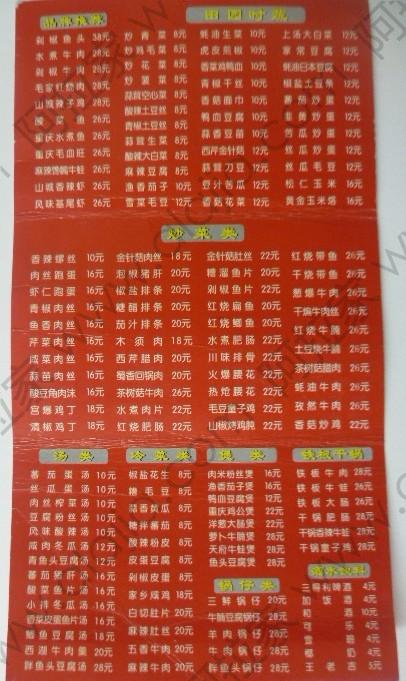 品牌推荐
剁椒鱼头 38元
水煮牛肉 28元
剁椒牛肉 28元
毛家红烧肉 28元
山城辣子鸡 28元
酸菜鱼 26元
重庆水煮鱼 26元
重庆毛血旺 26元
麻辣馋嘴牛蛙 26元
山城香辣虾 26元
风味基尾虾 26元
炒青菜 8元
炒鸡毛菜 8元
炒花菜 8元
炒菠菜 8元
蒜茸空心菜 8元
酸辣土豆丝 8元
青椒土豆丝 8元
蒜茸生菜 8元
酸辣大白菜 8元
麻辣豆腐 8元
鱼香茄子 10元
雪菜毛豆 10元
田园时蔬
蚝油生菜 10元
虎皮煎椒 10元
香菜鸡鸭血 10元
青椒干丝 10元
香菇面巾 10元
鸭血豆腐 10元
蒜香豆苗 10元
西芹金针菇 12元
豆汁苦瓜 12元
香菇花菜 12元
上汤大白菜 12元
家常豆腐 12元
蚝油日本豆腐 12元
椒盐土豆条 12元
番茄炒蛋 12元
苦瓜炒蛋 12元
丝瓜炒蛋 12元
丝瓜毛豆 12元
松仁玉米 16元
黄金玉米烙 16元
炒菜类
香辣螺丝 10元
肉丝跑蛋 16元
虾仁跑蛋 16元
青椒肉丝 16元
鱼香肉丝 16元
芹菜肉丝 16元
咸菜肉丝 16元
蒜苗肉丝 16元
酸豆角肉沫 16元
宫爆鸡丁 16元
清椒鸡丁 16元
金针菇肉丝 18元
泡椒猪肝 20元
椒盐排条 20元
糖醋排条 20元
茄汁排条 20元
木须肉 18元
西芹腊肉 20元
蜀香回锅肉 20元
茶树菇牛肉 26元
水煮肉片 22元
红烧肥肠 22元
金针菇肚丝 22元
糟溜鱼片 22元
剁椒鱼片 22元
红烧扁鱼 22元
红烧鲫鱼 22元
水煮肥肠 22元
川味排骨 22元
火爆腰花 22元
热炝腰花 22元
毛豆童子鸡 22元
山椒烤鸡肫 22元
红烧带鱼 26元
干烧带鱼 26元
葱爆牛肉 26元
干煸牛肉丝 26元
红烧牛腩 26元
土豆烧牛腩 26元
茶树菇腊肉 26元
蚝油牛肉 26元
孜然牛肉 26元
香菇炒鸡 26元
汤类
番茄蛋汤 10元
丝瓜蛋汤 10元
肉丝榨菜汤 10元
豆腐粉丝汤 10元
风味酸辣汤 10元
咸肉冬瓜汤 12元
青鱼头豆腐汤 12元
番茄猪肝汤 16元
酸菜鱼片汤 16元
小排冬瓜汤 16元
香菜皮蛋鱼片汤 16元
鲫鱼豆腐汤 18元
西湖牛肉羹 20元
胖鱼头豆腐汤 28元
冷菜类
椒盐花生 8元
糟毛豆 8元
蒜香黄瓜 8元
糖拌番茄 8元
酸辣粉皮 8元
皮蛋豆腐 8元
剁椒皮蛋 8元
家乡咸鸡 18元
白切肚片 20元
麻辣肚丝 20元
五香牛肉 20元
麻辣牛肉 20元
煲类
肉米粉丝煲 16元
渔香茄子煲 16元
鸭血豆腐煲 16元
重庆鸡公煲 22元
洋葱大肠煲 22元
萝卜牛腩煲 28元
天府牛蛙煲 28元
鱼头豆腐煲 28元
锅仔类
三鲜锅仔 20元
牛腩豆腐锅仔 28元
羊肉锅仔 28元
牛肉锅仔 28元
胖鱼头锅仔 28元
铁板干锅
铁板牛肉 28元
铁板牛蛙 28元
铁板大肠 26元
干锅肥肠 28元
干锅香辣牛蛙 28元
干锅童子鸡 28元
酒水饮料
三得利啤酒 4元
加饭酒 4元
和酒
可乐
雪碧
椰奶
王老吉 5元